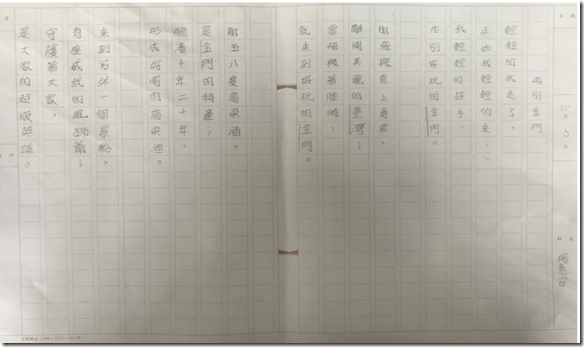 再別金門
輕輕的我走了,
正如我輕輕的來;
我輕輕的招手,
作別好玩的金門。
那飛機直上青雲,
離開美麗的臺灣;
當飛機著陸時,
就來到好玩的金門。
那五八度高粱酒,
是金門的特產;
十年二十年,
好喝的高粱酒。
來到另外一個景點,
有座威武的風獅爺;
守護著大家,
是大家的超級英雄。